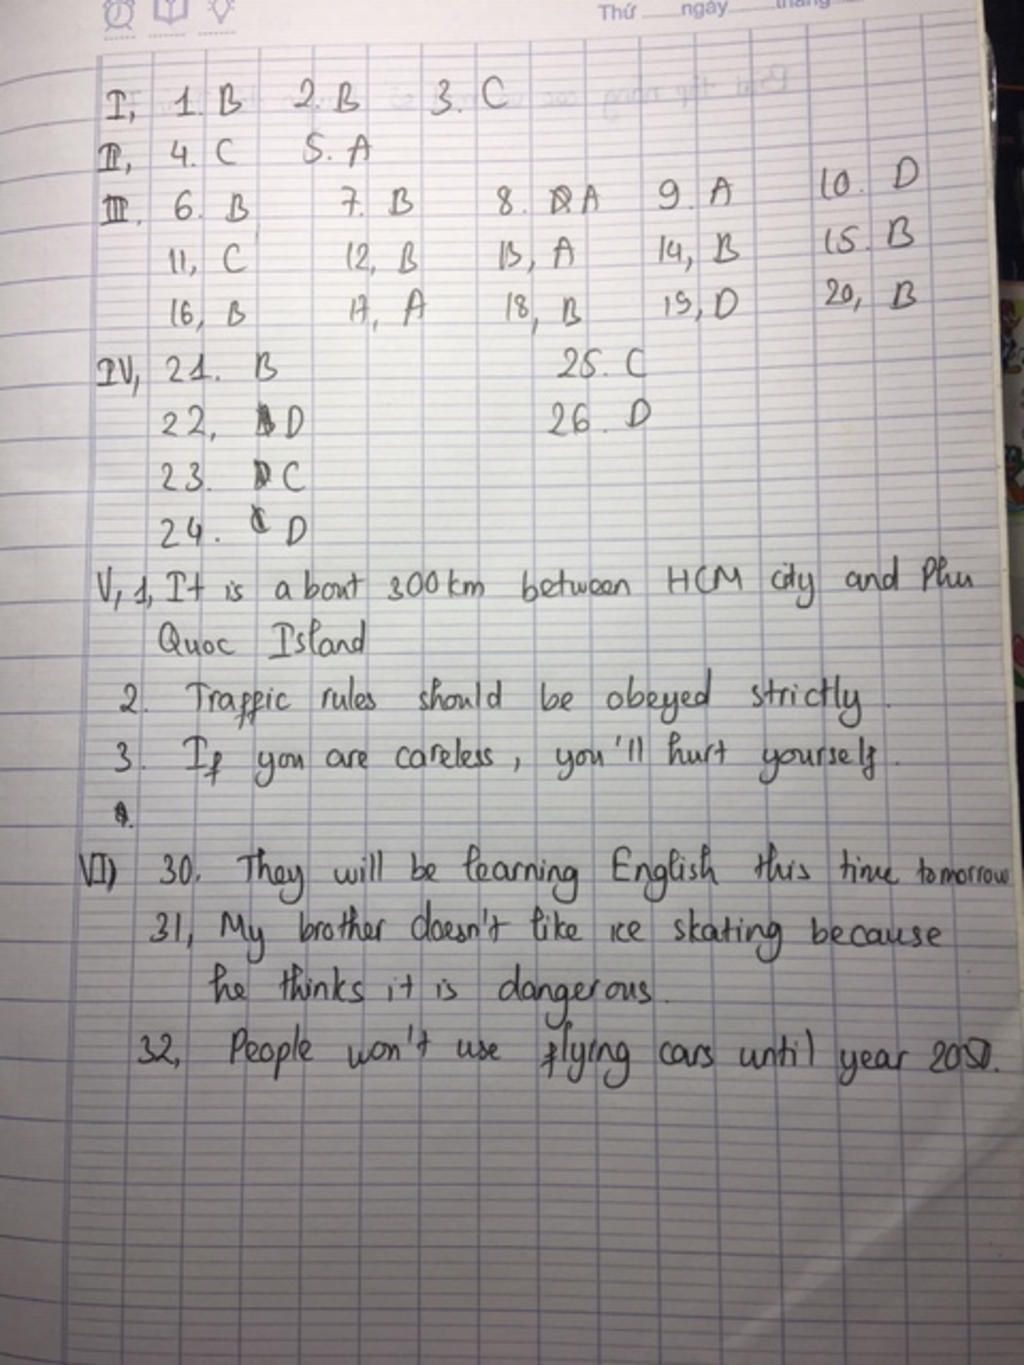 Thứ ngày tháng
I, 1. B 2. B 3. C
II, 4. C 5. A
III. 6. B 7. B 8. A 9. A 10. D
11, C 12, B 13, A 14, B 15. B
16, B 17, A 18, B 19, D 20, B
IV, 21. B 25. C
22, D 26. D
23. C
24. D
V, 1, It is about 300km between HCM city and Phu
Quoc Island
2. Traffic rules should be obeyed strictly.
3. If you are careless, you'll hurt yourself.
VI) 30. They will be learning English this time tomorrow
31, My brother doesn't like ice skating because
he thinks it is dangerous.
32, People won't use flying cars until year 2050.